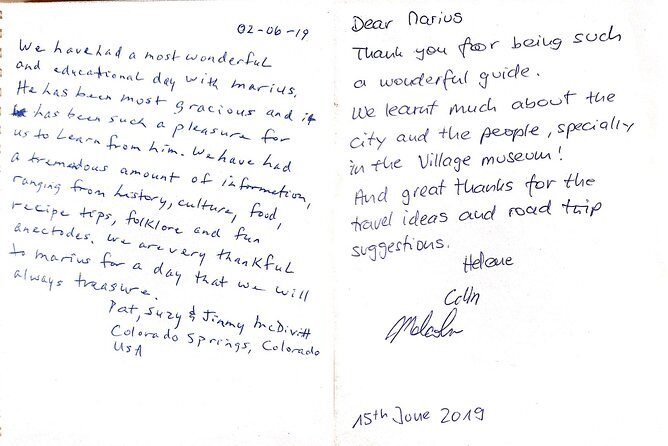 02-06-19
We have had a most wonderful
and educational day with marius.
He has been most gracious and it
has been such a pleasure for
us to learn from him. We have had
a tremendous amount of information,
ranging from history, culture, food,
recipe tips, folklore and fun
anectodes. We are very thankful
to marius for a day that we will
always treasure.
Pat, Suzy & Jimmy McDivitt
Colorado Springs, Colorado
USA
Dear Marius
Thank you for being such
a wonderful guide.
We learnt much about the
city and the people, specially
in the Village museum!
And great thanks for the
travel ideas and road trip
suggestions.
Helene
Colin
Malcolm
15th June 2019